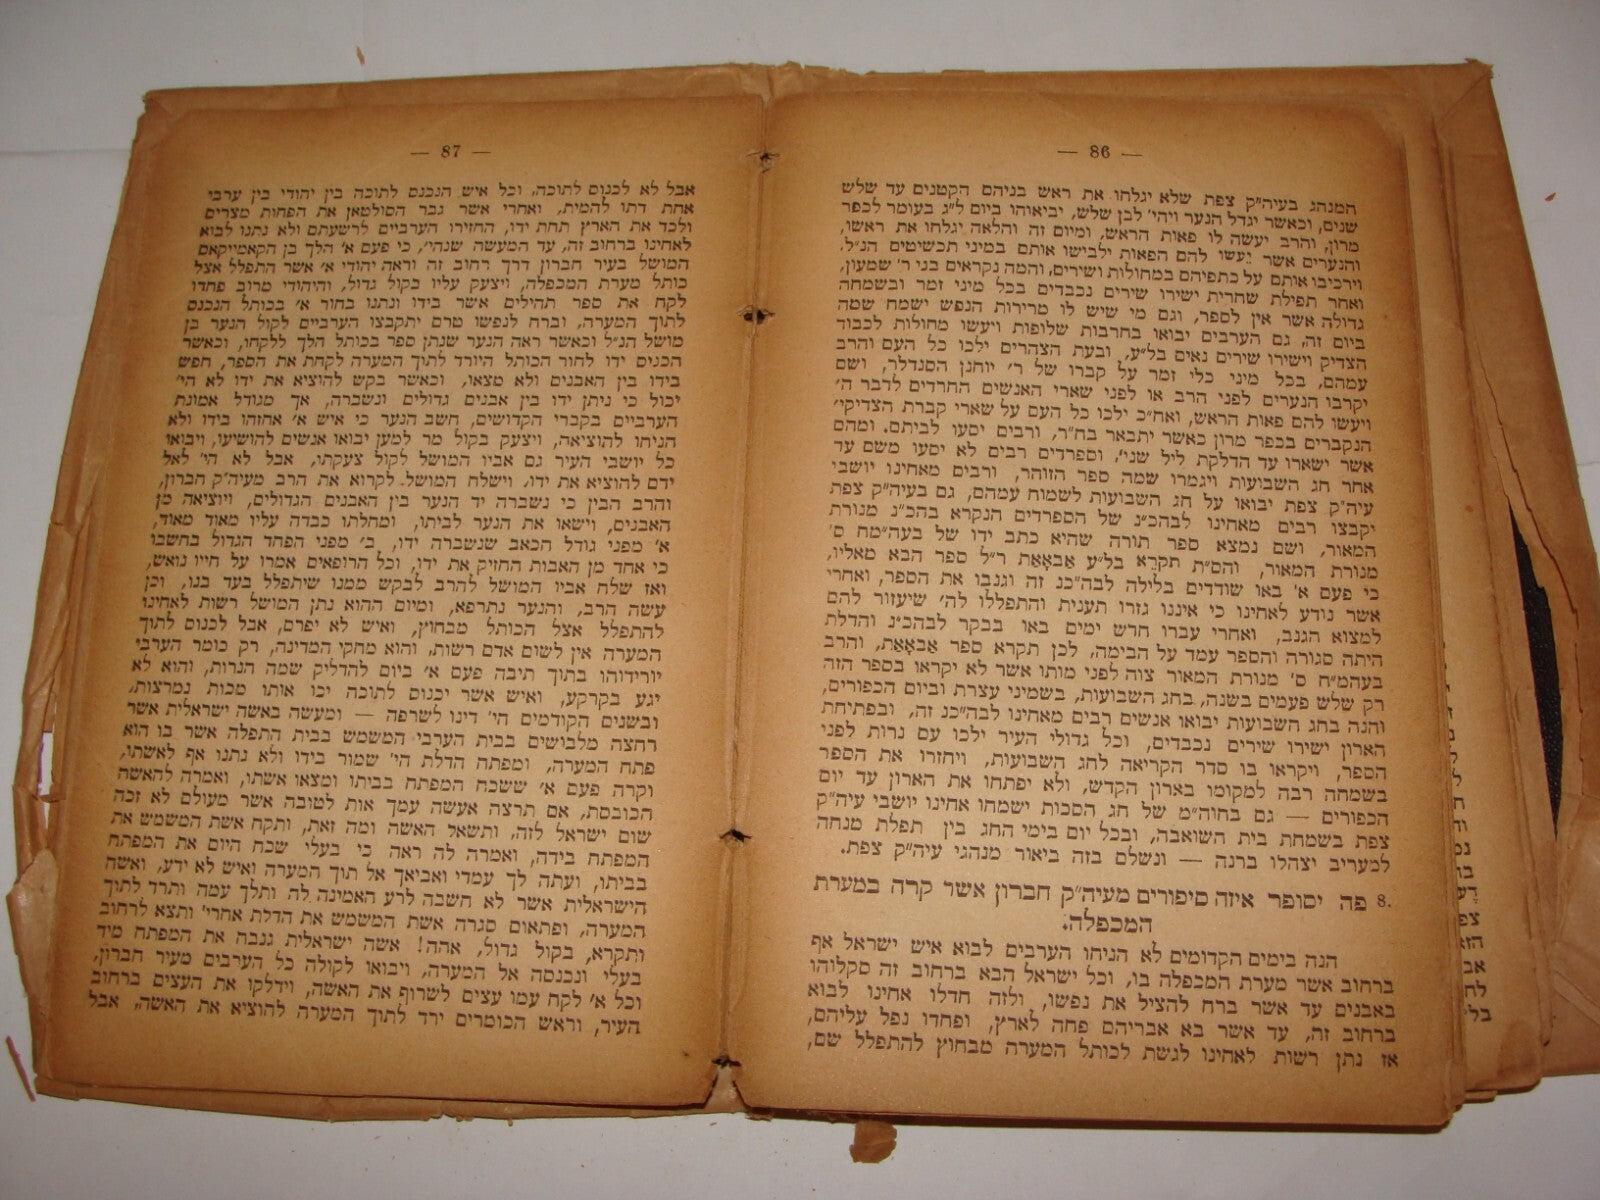 — 86 —
המנהג בעיה״ק צפת שלא יגלחו את ראש בניהם הקטנים עד שלש
שנים, וכאשר יגדל הנער ויהי׳ לבן שלש, יביאוהו ביום ל״ג בעומר לכפר
מרון, והרב יעשה לו פאות הראש, ומיום זה והלאה יגלחו את ראשו,
והנערים אשר יעשו להם הפאות ילבישו אותם במיני תכשיטים הנ״ל,
וירכיבו אותם על כתפיהם במחולות ושירים, והמה נקראים בני ר׳ שמעון,
ואחר תפילת שחרית ישירו שירים נכבדים בכל מיני זמר ובשמחה
גדולה אשר אין לספר, וגם מי שיש לו מרירות הנפש ישמח שמה
ביום זה, גם הערבים יבואו בחרבות שלופות ויעשו מחולות לכבוד
הצדיק וישירו שירים נאים בל״ע, ובעת הצהרים ילכו כל העם והרב
עמהם, בכל מיני כלי זמר על קברו של ר׳ יוחנן הסנדלר, ושם
יקרבו הנערים לפני הרב או לפני שארי האנשים החרדים לדבר ה׳
ויעשו להם פאות הראש, ואח״כ ילכו כל העם על שארי קברת הצדיקי׳
הנקברים בכפר מרון כאשר יתבאר בח״ר, ורבים יסעו לביתם. ומהם
אשר ישארו עד הדלקת ליל שני׳, וספרדים רבים לא יסעו משם עד
אחר חג השבועות ויגמרו שמה ספר הזוהר, ורבים מאחינו יושבי
עיה״ק צפת יבואו על חג השבועות לשמוח עמהם, גם בעיה״ק צפת
יקבצו רבים מאחינו לבהכ״נ של הספרדים הנקרא בהכ״נ מנורת
המאור, ושם נמצא ספר תורה שהיא כתב ידו של בעה״מח ס׳
מנורת המאור, והס״ת תקרא בל״ע אַבאָאַת ר״ל ספר הבא מאליו,
כי פעם א׳ באו שודדים בלילה לבה״כנ זה וגנבו את הספר, ואחרי
אשר נודע לאחינו כי איננו גזרו תענית והתפללו לה׳ שיעזור להם
למצוא הגנב, ואחרי עברו חדש ימים באו בבקר לבהכ״נ והדלת
היתה סגורה והספר עמד על הבימה, לכן תקרא ספר אַבאָאַת, והרב
בעהמ״ח ס׳ מנורת המאור צוה לפני מותו אשר לא יקראו בספר הזה
רק שלש פעמים בשנה, בחג השבועות, בשמיני עצרת וביום הכפורים,
והנה בחג השבועות יבואו אנשים רבים מאחינו לבה״כנ זה, ובפתיחת
הארון ישירו שירים נכבדים, וכל גדולי העיר ילכו עם נרות לפני
הספר, ויקראו בו סדר הקריאה לחג השבועות, ויחזרו את הספר
בשמחה רבה למקומו בארון הקדש, ולא יפתחו את הארון עד יום
הכפורים — גם בחוה״מ של חג הסכות ישמחו אחינו יושבי עיה״ק
צפת בשמחת בית השואבה, ובכל יום בימי החג בין תפלת מנחה
למעריב יצהלו ברנה — ונשלם בזה ביאור מנהגי עיה״ק צפת.
8. פה יסופר איזה סיפורים מעיה״ק חברון אשר קרה במערת
המכפלה.
הנה בימים הקדומים לא הניחו הערבים לבוא איש ישראל אף
ברחוב אשר מערת המכפלה בו, וכל ישראל הבא ברחוב זה סקלוהו
באבנים עד אשר ברח להציל את נפשו, ולזה חדלו אחינו לבוא
ברחוב זה, עד אשר בא אבריהם פחה לארץ, ופחדו נפל עליהם,
אז נתן רשות לאחינו לגשת לכותל המערה מבחוץ להתפלל שם,
— 87 —
אבל לא לכנוס לתוכה, וכל איש הנכנס לתוכה בין יהודי בין ערבי
אחת דתו להמית, ואחרי אשר גבר הסולטאן את הפחות מצרים
ולכד את הארץ תחת ידו, החזירו הערביים לרשעתם ולא נתנו לבוא
לאחינו ברחוב זה, עד המעשה שנהי׳, כי פעם א׳ הלך בן הקאמייקאם
המושל בעיר חברון דרך רחוב זה וראה יהודי א׳ אשר התפלל אצל
כותל מערת המכפלה, ויצעק עליו בקול גדול, והיהודי מרוב פחדו
לקח את ספר תהילים אשר בידו ונתנו בחור א׳ בכותל הנכנס
לתוך המערה, וברח לנפשו טרם יתקבצו הערביים לקול הנער בן
מושל הנ״ל וכאשר ראה הנער שנתן ספר בכותל הלך ללקחו, וכאשר
הכניס ידו לחור הכותל היורד לתוך המערה לקחת את הספר, חפש
בידו בין האבנים ולא מצאו, וכאשר בקש להוציא את ידו לא הי׳
יכול כי ניתן ידו בין אבנים גדולים ונשברה, אך מגודל אמונת
הערביים בקברי הקדושים, חשב הנער כי איש א׳ אחזהו בידו ולא
הניחו להוציאה, ויצעק בקול מר למען יבואו אנשים להושיעו, ויבואו
כל יושבי העיר גם אביו המושל לקול צעקתו, אבל לא הי׳ לאל
ידם להוציא את ידו. וישלח המושל לקרוא את הרב מעיה״ק חברון,
והרב הבין כי נשברה יד הנער בין האבנים הגדולים, ויוציאה מן
האבנים, וישאו את הנער לביתו, ומחלתו כבדה עליו מאוד מאוד,
א׳ מפני גודל הכאב שנשברה ידו, ב׳ מפני הפחד הגדול בחשבו
כי אחד מן האבות החזיק את ידו, וכל הרופאים אמרו על חייו נואש,
ואז שלח אביו המושל להרב לבקש ממנו שיתפלל בעד בנו, וכן
עשה הרב, והנער נתרפא, ומיום ההוא נתן המושל רשות לאחינו
להתפלל אצל הכותל מבחוץ, ואיש לא יפרם, אבל לכנוס לתוך
המערה אין לשום אדם רשות, והוא מחקי המדינה, רק כומר הערבי
יורידוהו בתוך תיבה פעם א׳ ביום להדליק שמה הנרות, והוא לא
יגע בקרקע, ואיש אשר יכנוס לתוכה יכו אותו מכות נמרצות,
ובשנים הקודמים הי׳ דינו לשרפה — ומעשה באשה ישראלית אשר
רחצה מלבושים בבית הערבי המשמש בבית התפלה אשר בו הוא
פתח המערה, ומפתח הדלת הי׳ שמור בידו ולא נתנו אף לאשתו,
וקרה פעם א׳ ששכח המפתח בביתו ומצאו אשתו, ואמרה להאשה
הכובסת, אם תרצה אעשה עמך אות לטובה אשר מעולם לא זכה
שום ישראל לזה, ותשאל האשה ומה זאת, ותקח אשת המשמש את
המפתח בידה, ואמרה לה ראה כי בעלי שכח היום את המפתח
בביתו, ועתה לך עמדי ואביאך אל תוך המערה ואיש לא ידע, ואשה
הישראלית אשר לא חשבה לרע האמינה לה ותלך עמה ותרד לתוך
המערה, ופתאום סגרה אשת המשמש את הדלת אחרי׳ ותצא לרחוב
ותקרא, בקול גדול, אהה! אשה ישראלית גנבה את המפתח מיד
בעלי ונכנסה אל המערה, ויבואו לקולה כל הערבים מעיר חברון,
וכל א׳ לקח עמו עצים לשרוף את האשה, וידלקו את העצים ברחוב
העיר, וראש הכומרים ירד לתוך המערה להוציא את האשה, אבל